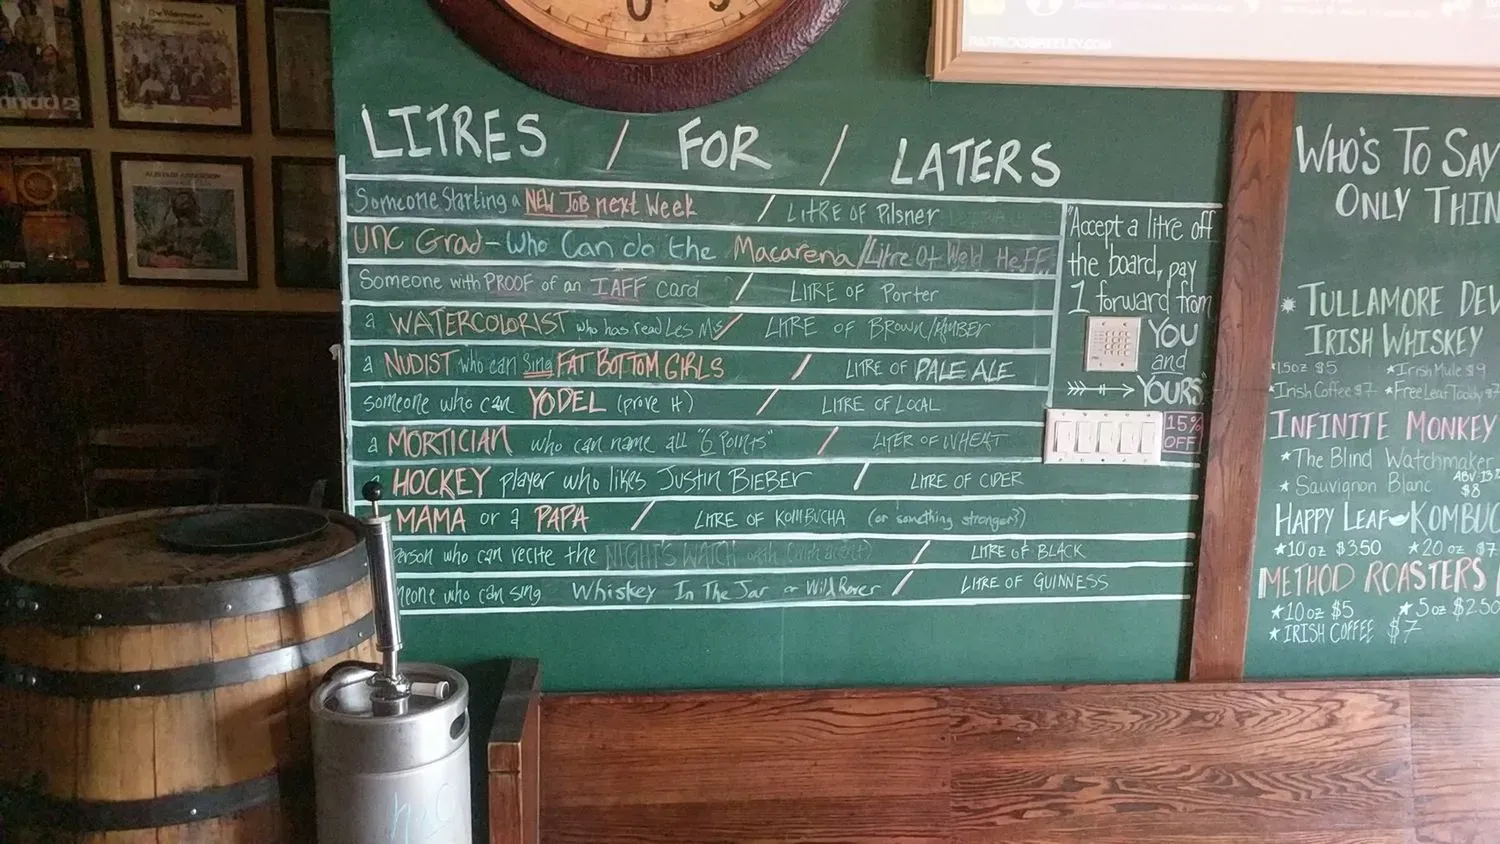 LITRES / FOR / LATERS
Someone Starting a NEW JOB next Week / LITRE OF Pilsner
UNC Grad - Who Can do the Macarena / Litre Of Weld Heff
Someone with PROOF of an IAFF card / LITRE OF Porter
a WATERCOLORIST who has read Les Ms / LITRE OF BROWN/AMBER
a NUDIST who can Sing FAT BOTTOM GIRLS / LITRE OF PALE ALE
someone who can YODEL (prove it) / LITRE OF LOCAL
a MORTICIAN who can name all "6 POINTS" / LITER OF WHEAT
HOCKEY player who likes JUSTIN BIEBER / LITRE OF CIDER
MAMA or a PAPA / LITRE OF KOMBUCHA (or something stronger?)
person who can recite the NIGHT'S WATCH / LITRE OF BLACK
meone who can sing Whiskey In The Jar or Wild Rover / LITRE OF GUINNESS
"Accept a litre off
the board, pay
1 forward from
YOU
and
YOURS"
15%
OFF
WHO'S TO SAY
ONLY THIN
TULLAMORE DEW
IRISH WHISKEY
1.5oz $5 *Irish Mule $9
*Irish Coffee $7 *Free Leaf Toddy $7
INFINITE MONKEY
*The Blind Watchmaker
*Sauvignon Blanc
$8
HAPPY LEAF KOMBUC
*10 oz $3.50 *20 oz $7
METHOD ROASTERS
*10 oz $5 *5 oz $2.50
*IRISH COFFEE $7
H2O